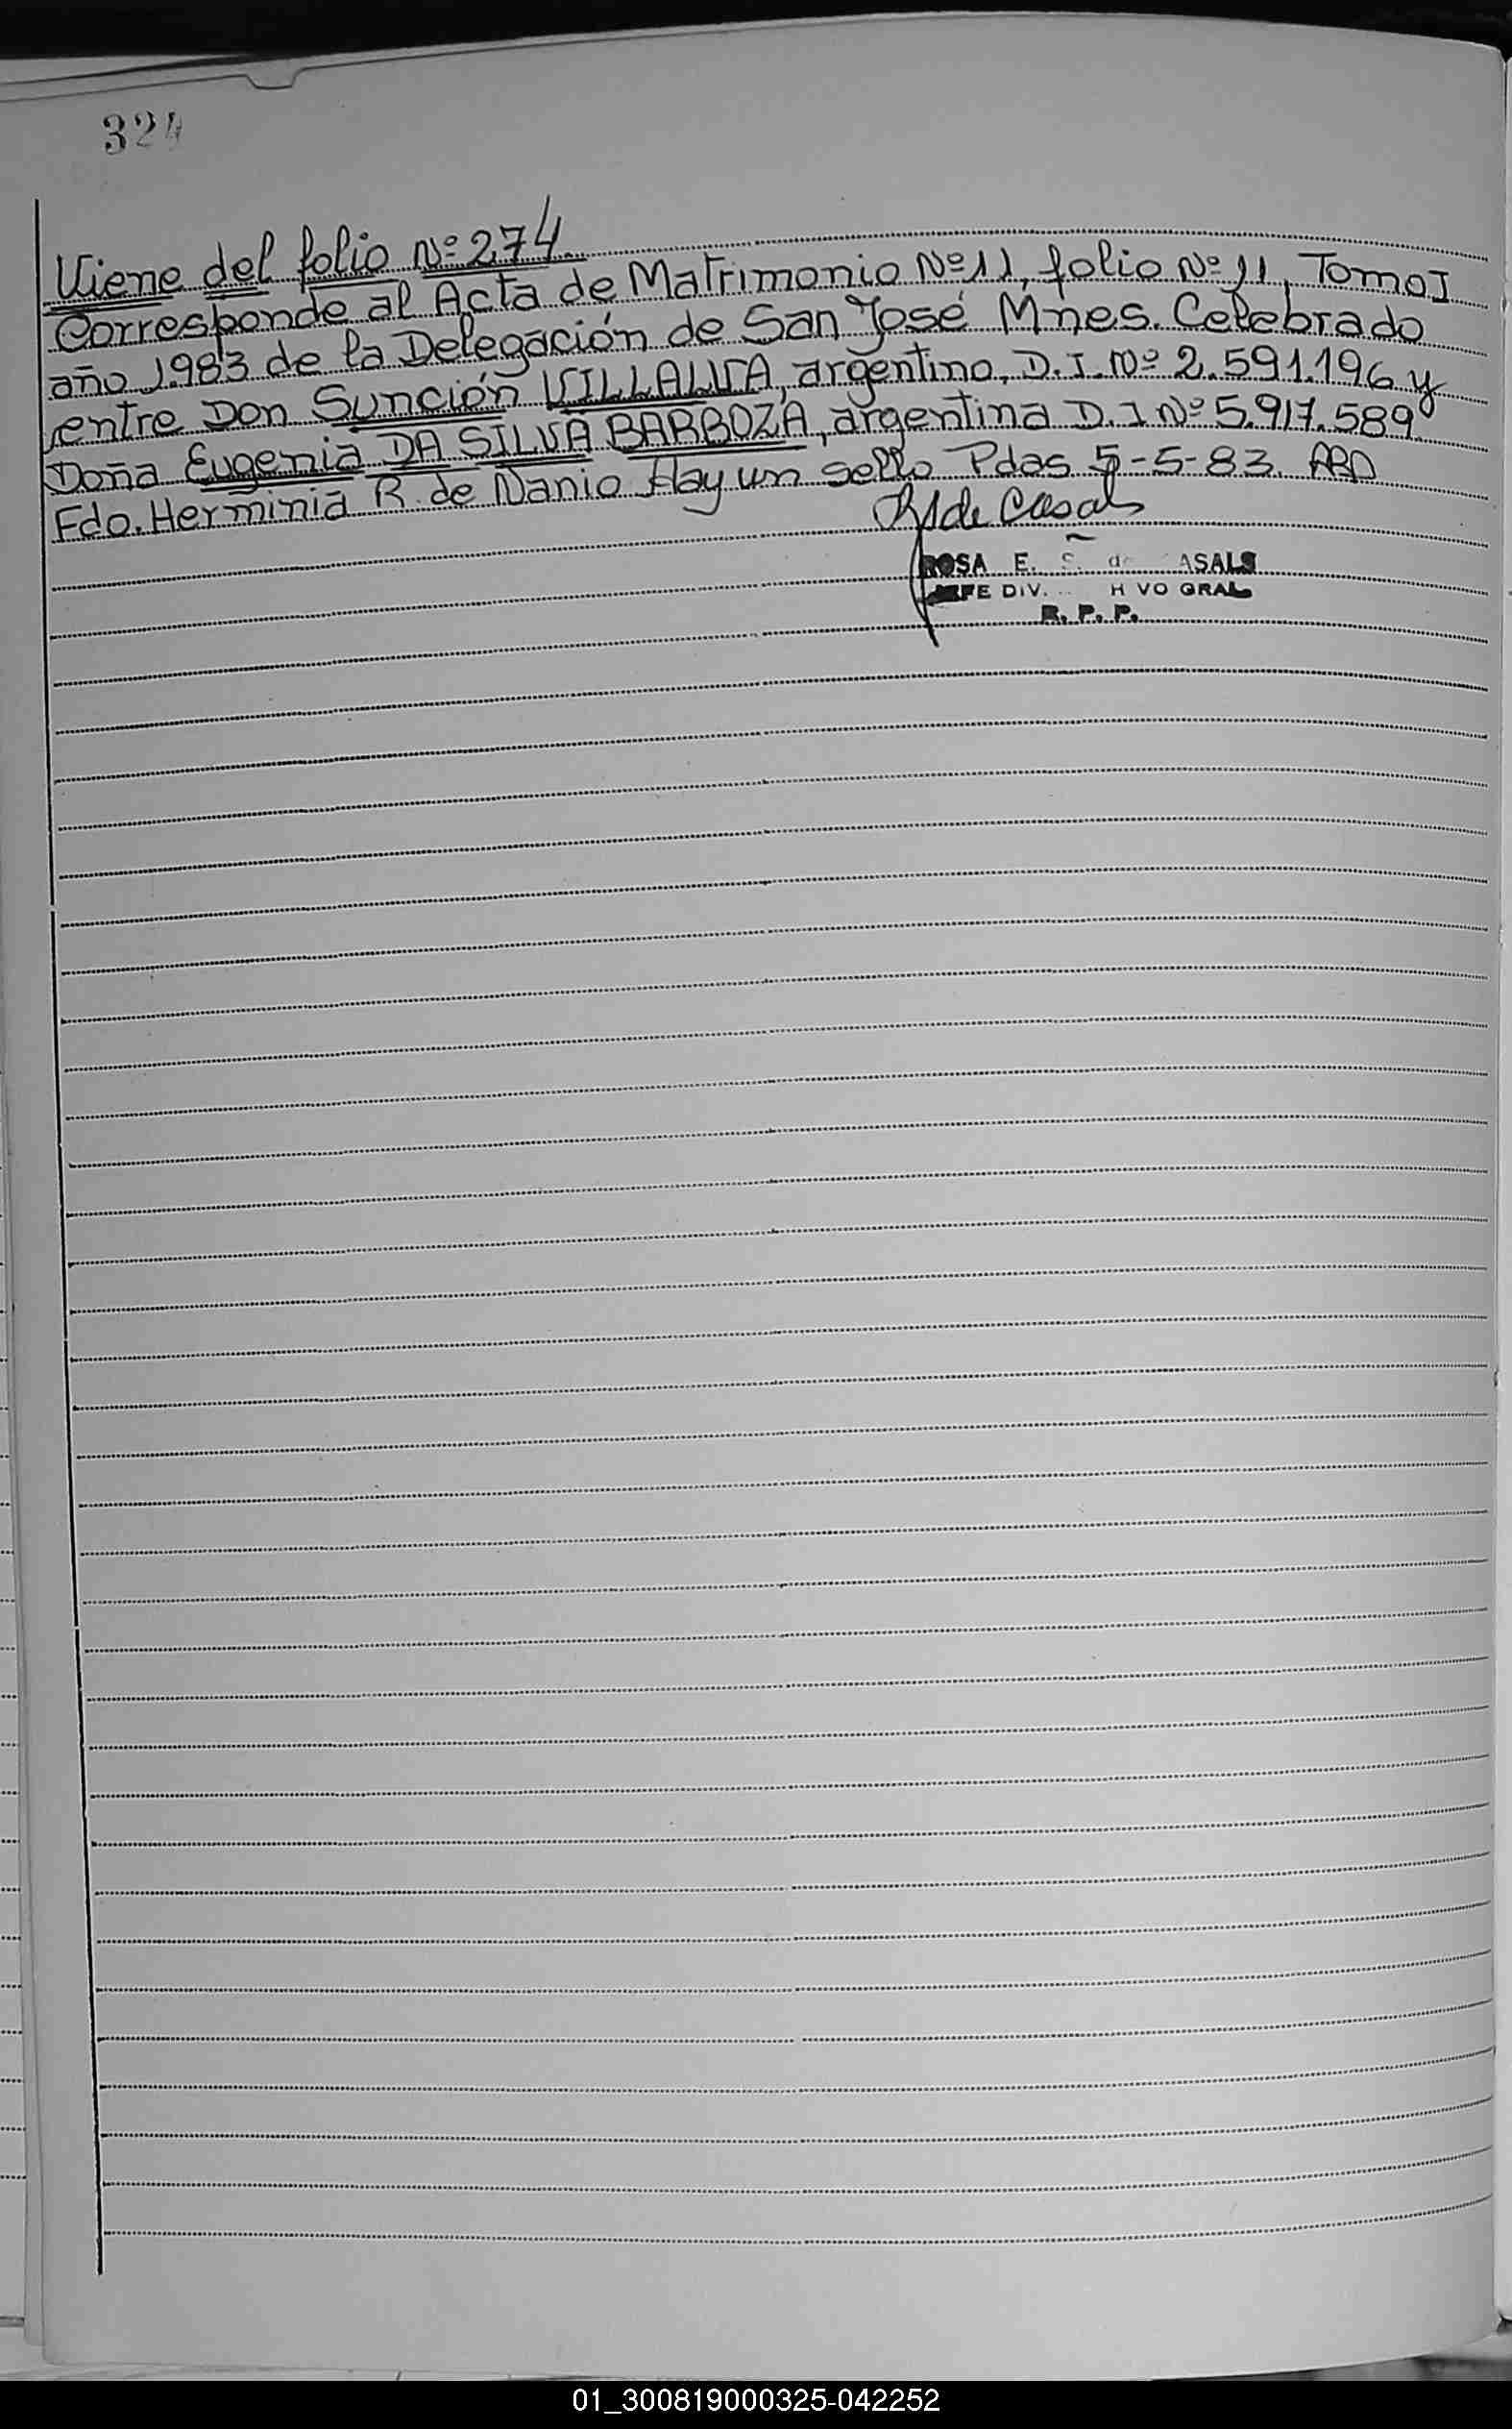 324
Viene del folio Nº 274
Corresponde al Acta de Matrimonio Nº 11, folio Nº 11, Tomo I
año 1.983 de la Delegación de San José Mnes. Celebrado
entre Don Sunción VILLALVA, argentino, D.I. Nº 2.591.196 y
Doña Eugenia DA SILVA BARBOZA, argentina D.I Nº 5.917.589
Fdo. Herminia R. de Nanio Hay un sello Pdas 5-5-83.
de Casals
ROSA E. S. de ASALS
JEFE DIV. H VO GRAL
R. P. P.
01_300819000325-042252